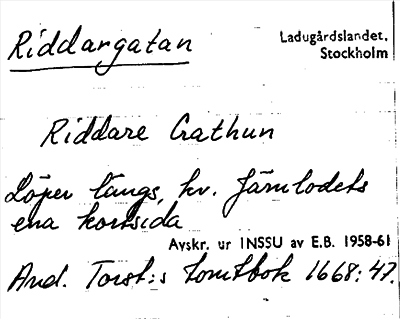 Riddargatan
Ladugårdslandet,
Stockholm
Riddare Crathun
Löper längs, kv. Järnlodets
ena kortsida
Avskr. ur INSSU av E.B. 1958-61
And. Torst:s tomtbok 1668:47.